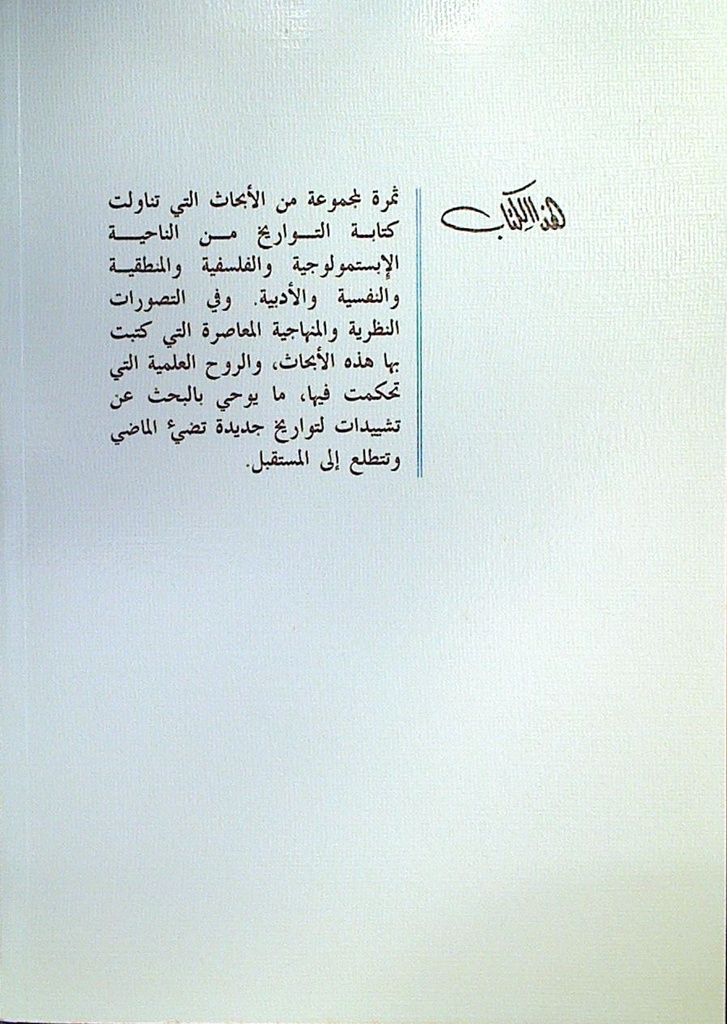 هذا الكتاب
ثمرة لمجموعة من الأبحاث التي تناولت
كتابة التـواريخ مـن الناحيـة
الإبستمولوجية والفلسفية والمنطقية
والنفسية والأدبية. وفي التصورات
النظرية والمنهاجية المعاصرة التي كتبت
بها هذه الأبحاث، والروح العلمية التي
تحكمت فيها، ما يوحي بالبحث عن
تشييدات لتواريخ جديدة تضيء الماضي
وتتطلع إلى المستقبل.